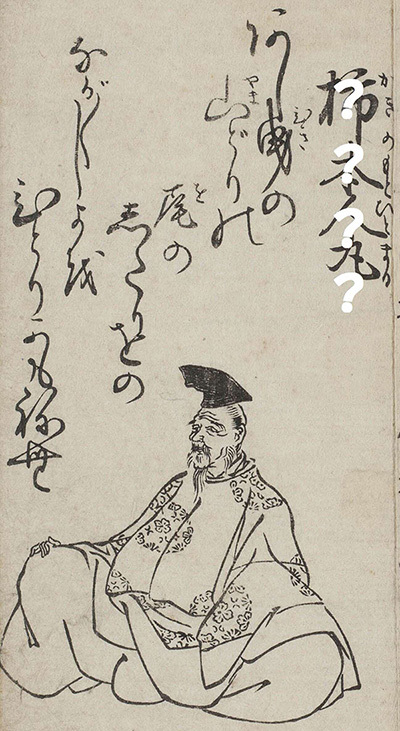 かきのもとひとまる
柿本人丸
????
あし曳の
びき
山どりの
やま
尾の
を
しだりをの
なが〳〵しよを
ひとりかもねむ